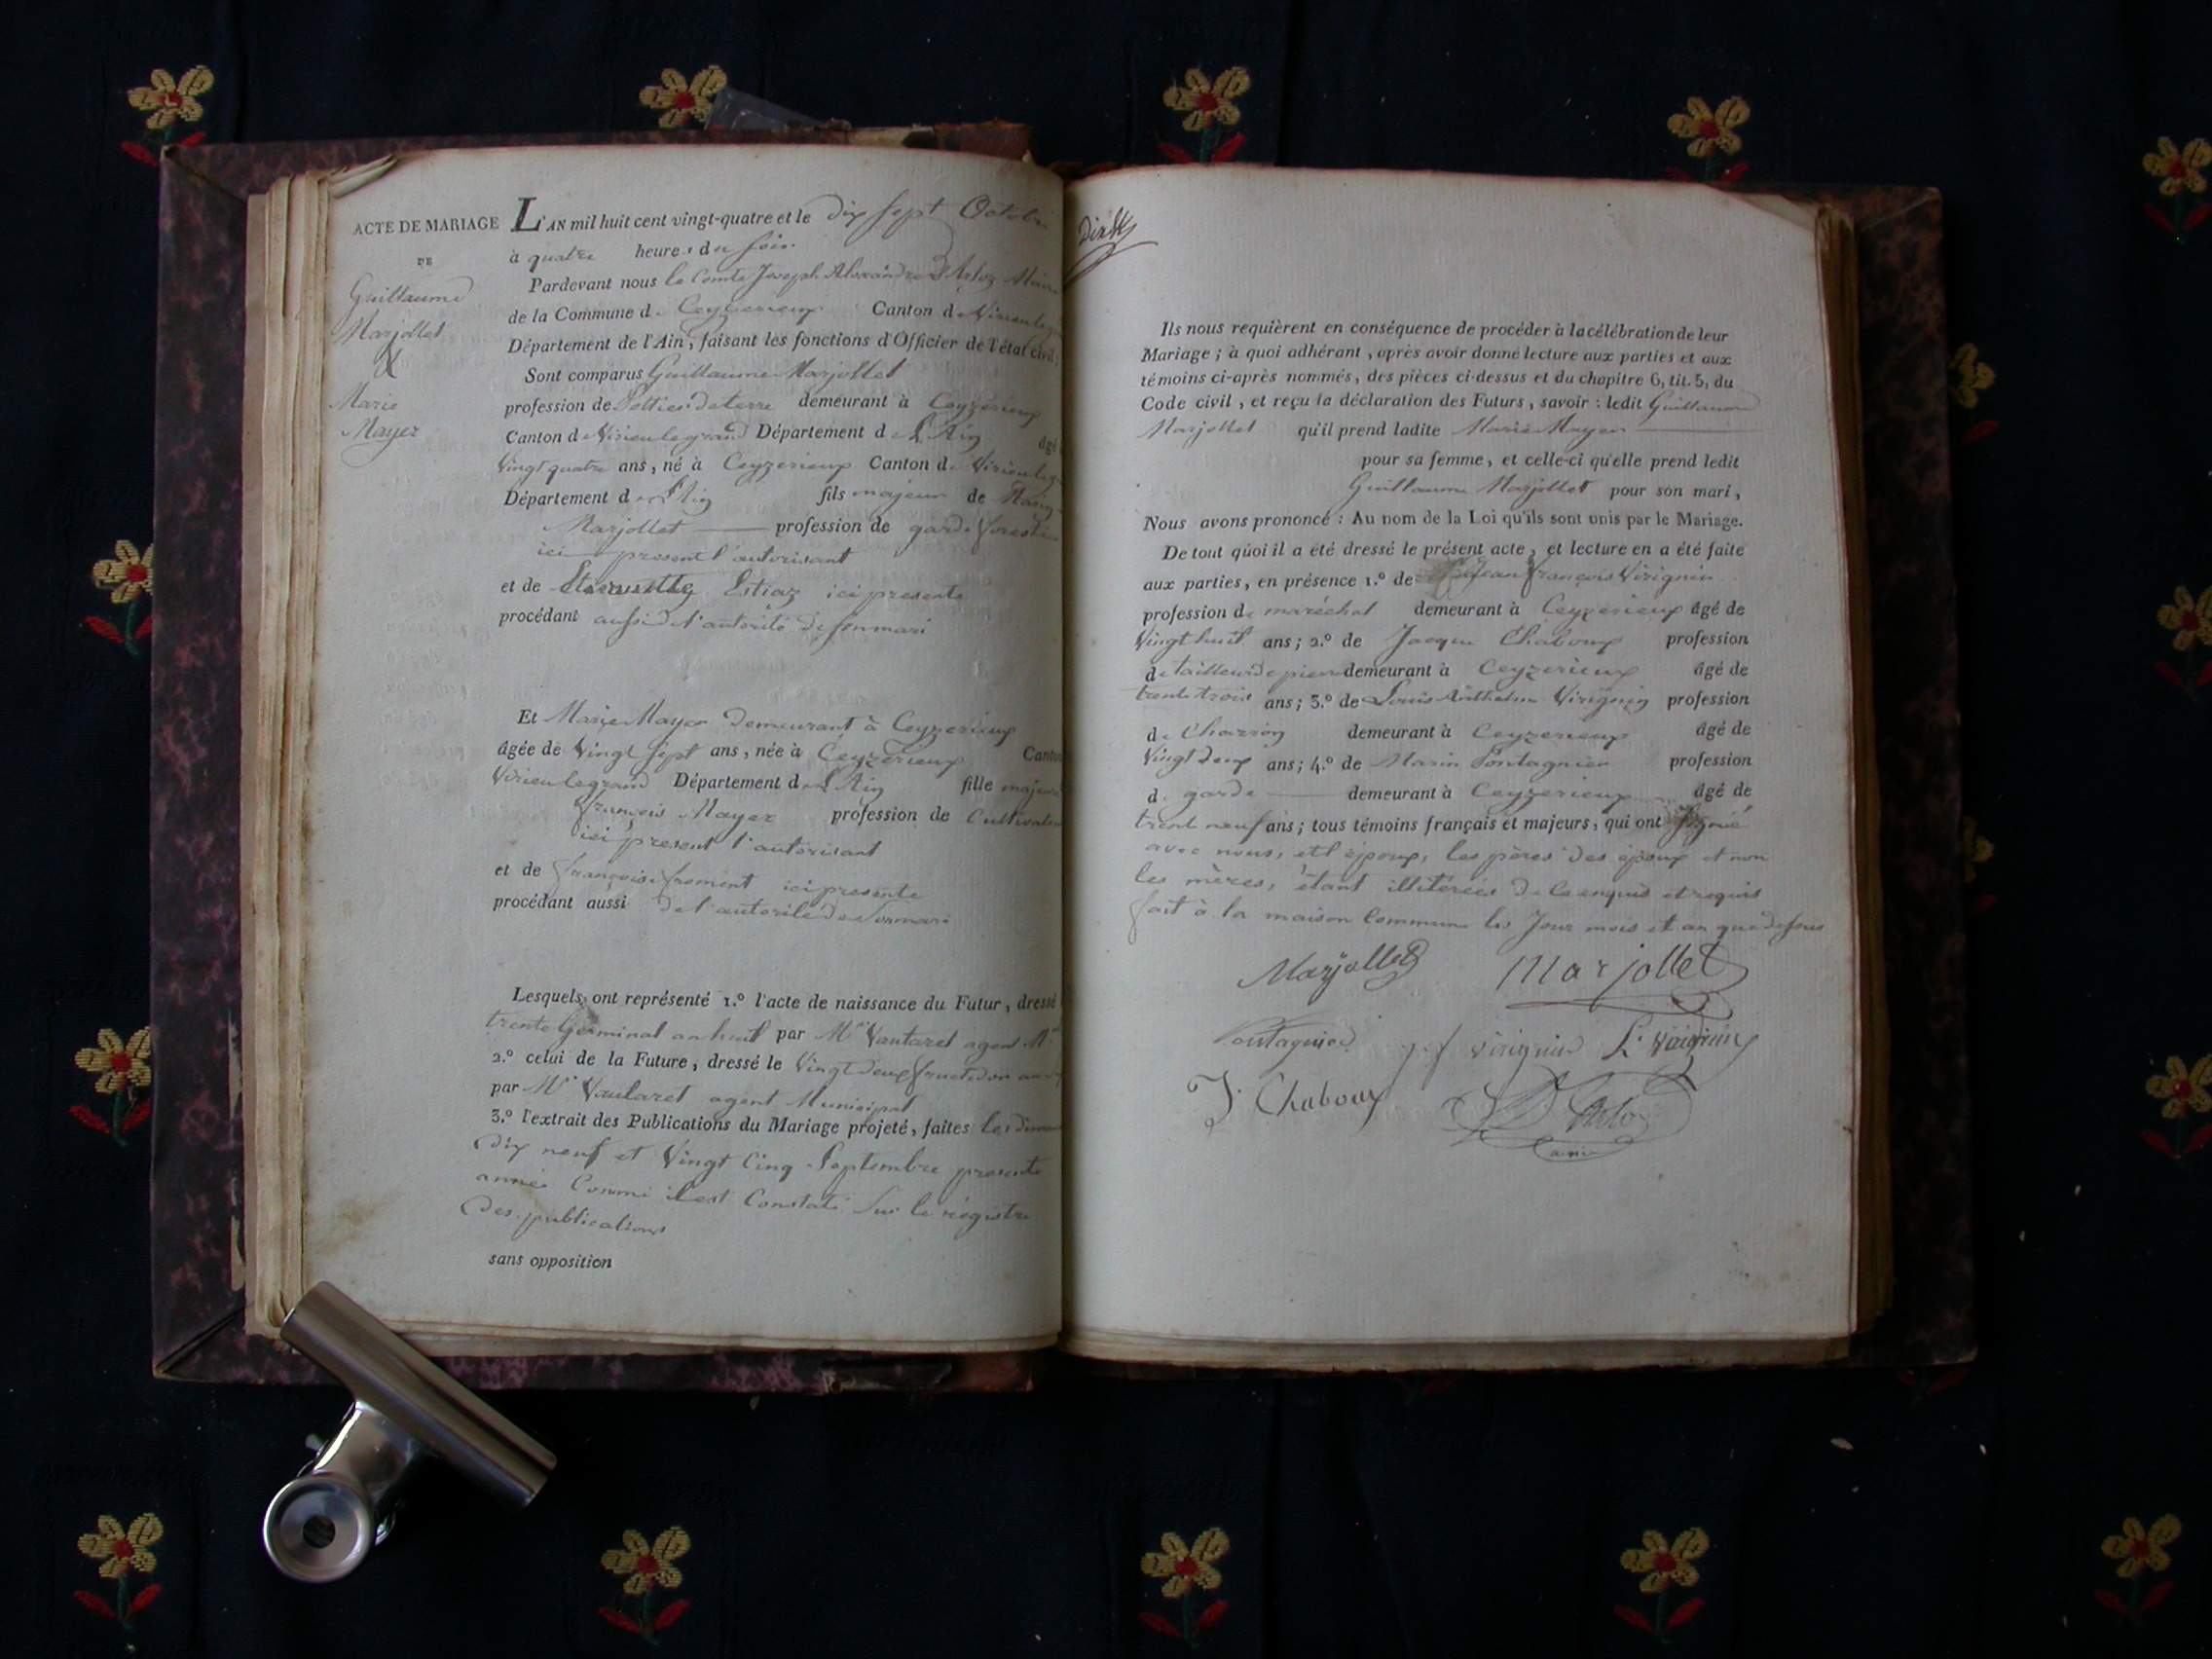 ACTE DE MARIAGE
DE
Guillaume
Marjollet
&
Marie
Mayer
L'AN mil huit cent vingt-quatre et le dix sept Octobre
à quatre heures du soir.
Pardevant nous le Comte Joseph Alexandre D'Arloz Maire
de la Commune de Ceyzerieux Canton de Virieu legrand
Département de l'Ain, faisant les fonctions d'Officier de l'état civil,
Sont comparus Guillaume Marjollet
profession de Pottier de terre demeurant à Ceyzerieux
Canton de Virieu legrand Département de L'Ain âgé
Vingt quatre ans, né à Ceyzerieux Canton de Virieu
Département de L'Ain fils majeur de
Marjollet profession de garde forestier
ici present l'autorisant
et de Etiennette Estiaz ici presente
procédant aussi de l'autorité de son mari
Et Marie Mayer demeurant à Ceyzerieux
âgée de Vingt Sept ans, née à Ceyzerieux Canton
Virieu legrand Département de L'Ain fille majeure
François Mayer profession de Cultivateur
ici present l'autorisant
et de françoise froment ici presente
procédant aussi de l'autorité de Son mari
Lesquels ont représenté 1.º l'acte de naissance du Futur, dressé
trente Germinal an huit par Mr Vautaret agent
2.º celui de la Future, dressé le Vingt Deux fructidor an
par Mr Vautaret agent Municipal
3.º l'extrait des Publications du Mariage projeté, faites les
Dix neuf et Vingt Cinq Septembre presente
année Comme il est Constaté Sur le régistre
Des publications
sans opposition
Ils nous requièrent en conséquence de procéder à la célébration de leur
Mariage ; à quoi adhérant, après avoir donné lecture aux parties et aux
témoins ci-après nommés, des pièces ci-dessus et du chapitre 6, tit. 5, du
Code civil, et reçu la déclaration des Futurs, savoir : ledit Guillaume
Marjollet qu'il prend ladite Marie Mayer
pour sa femme, et celle-ci qu'elle prend ledit
Guillaume Marjollet pour son mari,
Nous avons prononcé : Au nom de la Loi qu'ils sont unis par le Mariage.
De tout quoi il a été dressé le présent acte, et lecture en a été faite
aux parties, en présence 1.º de Jean françois Virignin
profession de maréchal demeurant à Ceyzerieux âgé de
Vingt huit ans ; 2.º de Jacque Chaboux profession
de tailleur de pierre demeurant à Ceyzerieux âgé de
trente trois ans ; 3.º de Louis Anthelme Virignin profession
de Charron demeurant à Ceyzerieux âgé de
Vingt Deux ans ; 4.º de Marin Pontagnier profession
de garde demeurant à Ceyzerieux âgé de
trent neuf ans ; tous témoins français et majeurs, qui ont Signé
avec nous, et l'époux, les pères des époux et non
les mères, étant illitérées De ce enquis et requis
fait à la maison Commune les Jour mois et an que dessus
Marjollet Marjollet
Pontagnier j f virignin L. Virignin
J. Chaboux D'Arloz